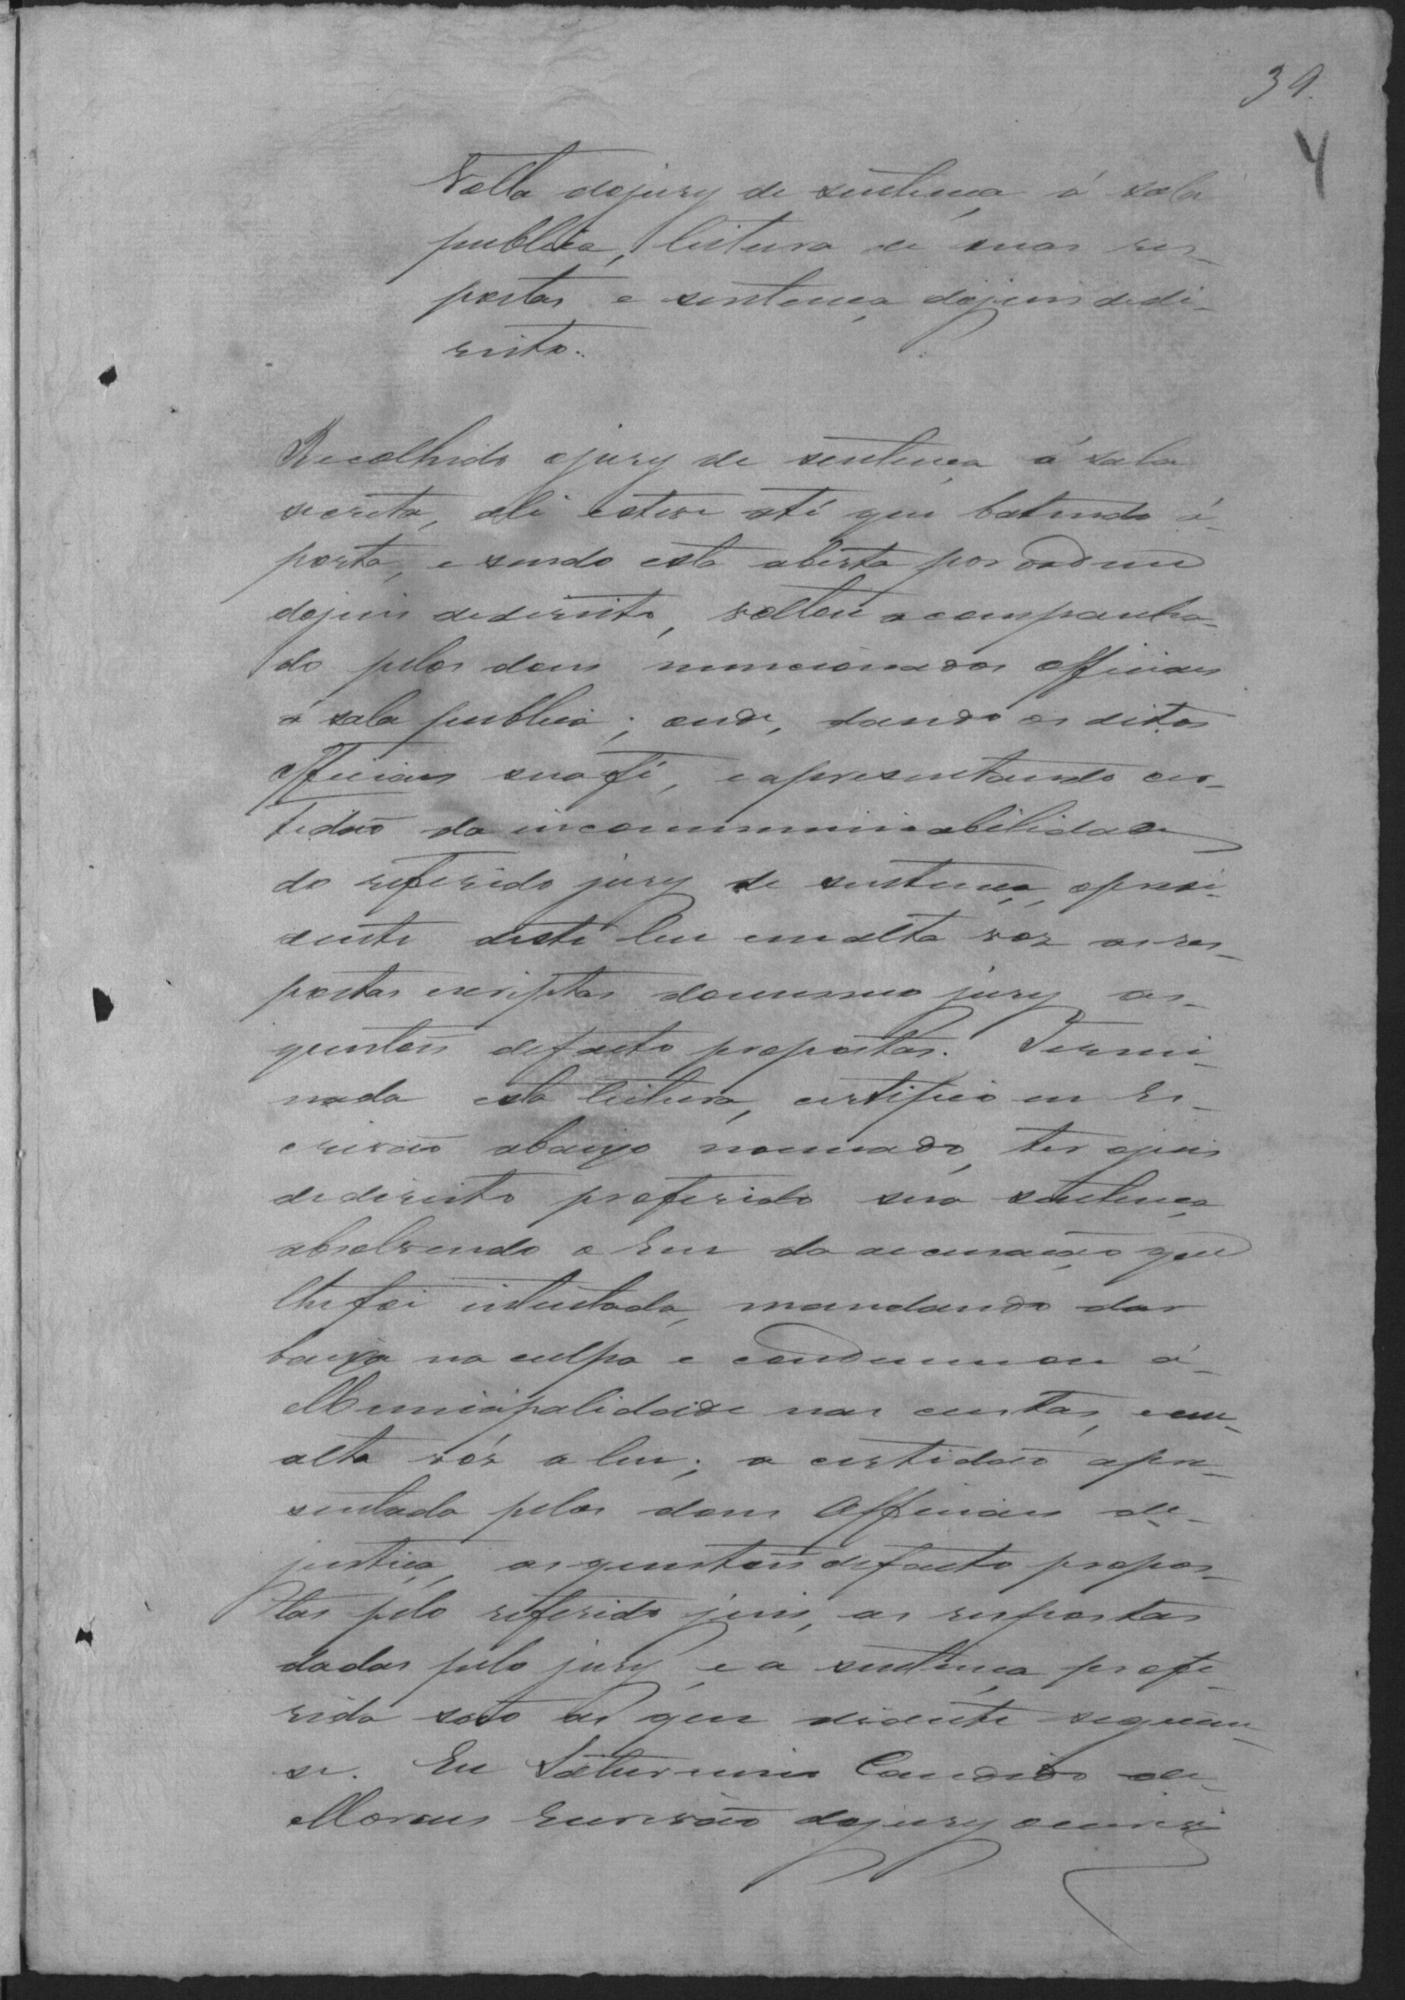 39.
4
Volta do jury de sentença á sala
publica, leitura de suas res-
postas e sentença do juis de di-
reito.
Recolhido o jury de sentença á sala
secreta, ali esteve até que batendo á
porta, e sendo esta aberta por ordem
do juis de direito, voltou acompanha-
do pelos dous mencionados officiaes
á sala publica; onde, dando os ditos
Officiaes sua fé, e apresentando cer-
tidão da incommunicabilidade
do referido jury de sentença, o presi-
dente deste leu em alta voz as res-
postas escriptas do mesmo jury as
questões de facto propostas. Termi-
nada esta leitura, certifico eu Es-
crivão abaixo nomeado, ter o juis
de direito proferido sua sentença
absolvendo o Reu da accusação que
lhe foi intentada, mandando dar
baixa na culpa e condemnou á
Municipalidade nas custas, e em
alta vós a leu; a certidão apre-
sentada pelos dous Officiaes de
justiça, as questões de facto propos-
tas pelo referido juis, as respostas
dadas pelo jury, e a sentença profe-
rida são as que adiante seguem-
se. Eu Saturnino Candido de
Moraes Escrivão do jury o escrevi